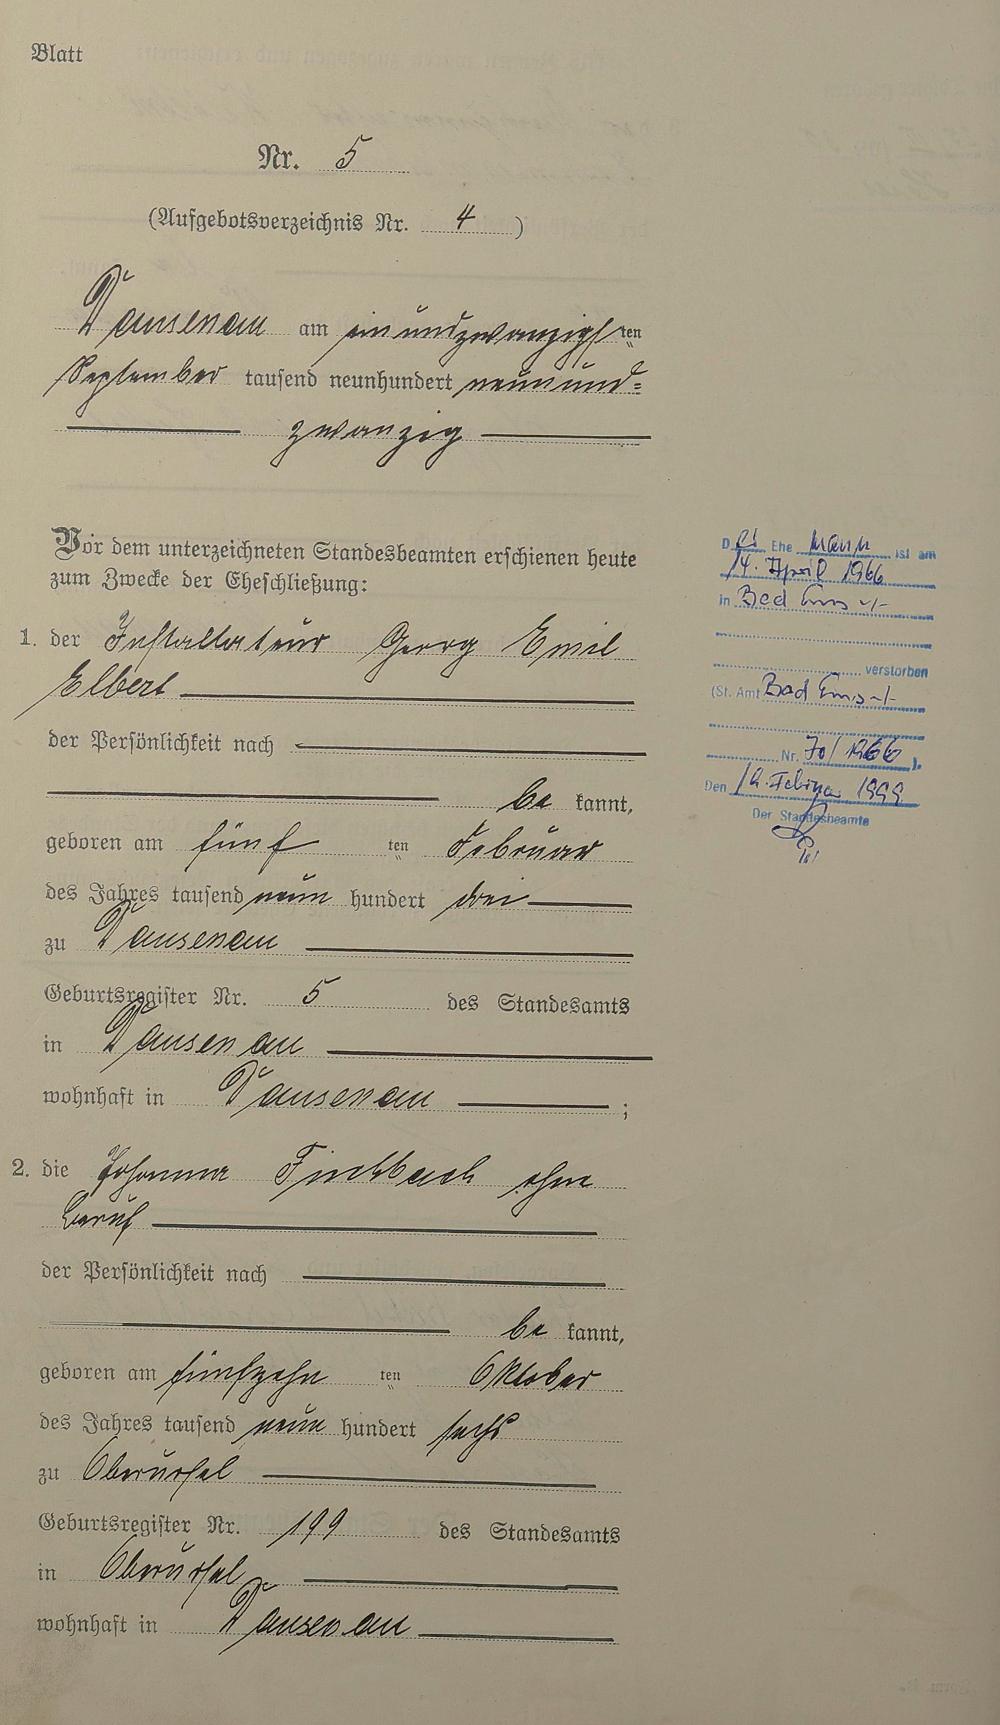 Blatt
Nr. 5
(Aufgebotsverzeichnis Nr. 4 )
Dausenau am einundzwanzigsten
September tausend neunhundert neunund=
zwanzig
Vor dem unterzeichneten Standesbeamten erschienen heute
zum Zwecke der Eheschließung:
1. der Installateur Georg Emil
Elbert
der Persönlichkeit nach
be kannt,
geboren am fünf ten Februar
des Jahres tausend neun hundert drei
zu Dausenau
Geburtsregister Nr. 5 des Standesamts
in Dausenau
wohnhaft in Dausenau ;
2. die Johanna Fischbach ohne
Beruf
der Persönlichkeit nach
be kannt,
geboren am fünfzehn ten Oktober
des Jahres tausend neun hundert sechs
zu Oberursel
Geburtsregister Nr. 199 des Standesamts
in Oberursel
wohnhaft in Dausenau
Der Ehe mann ist am
14. April 1966
in Bad Ems -/-
verstorben
(St. Amt Bad Ems -/-
Nr. 70/1966 ).
Den Februar 1999
Der Standesbeamte